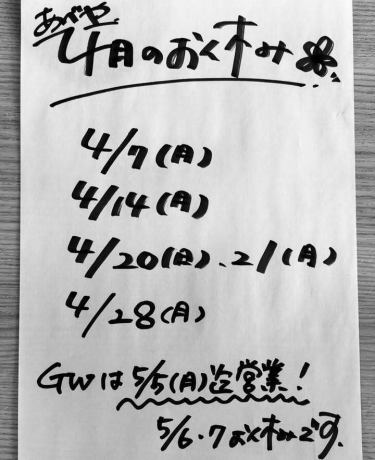 あがや
4月のおくやみ
4/7(月)
4/14(月)
4/20(日)、21(月)
4/28(月)
GWは5/5(月)迄営業!
5/6・7お休みです。